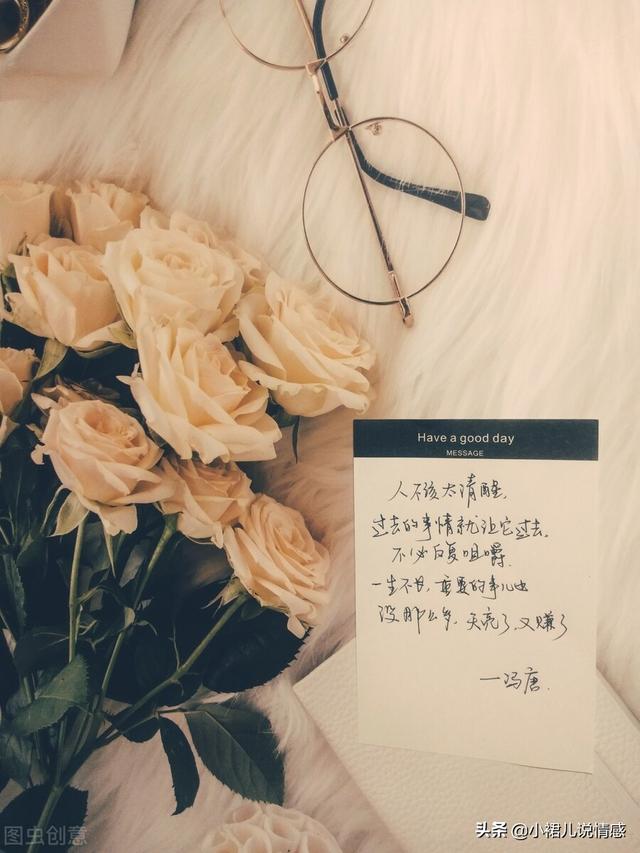 Have a good day
MESSAGE
人不该太清醒,
过去的事情就让它过去。
不必反复咀嚼.
一生不长,重要的事儿也
没那么多,天亮了,又赚了
一冯唐.
图虫创意
头条 @小裙儿说情感